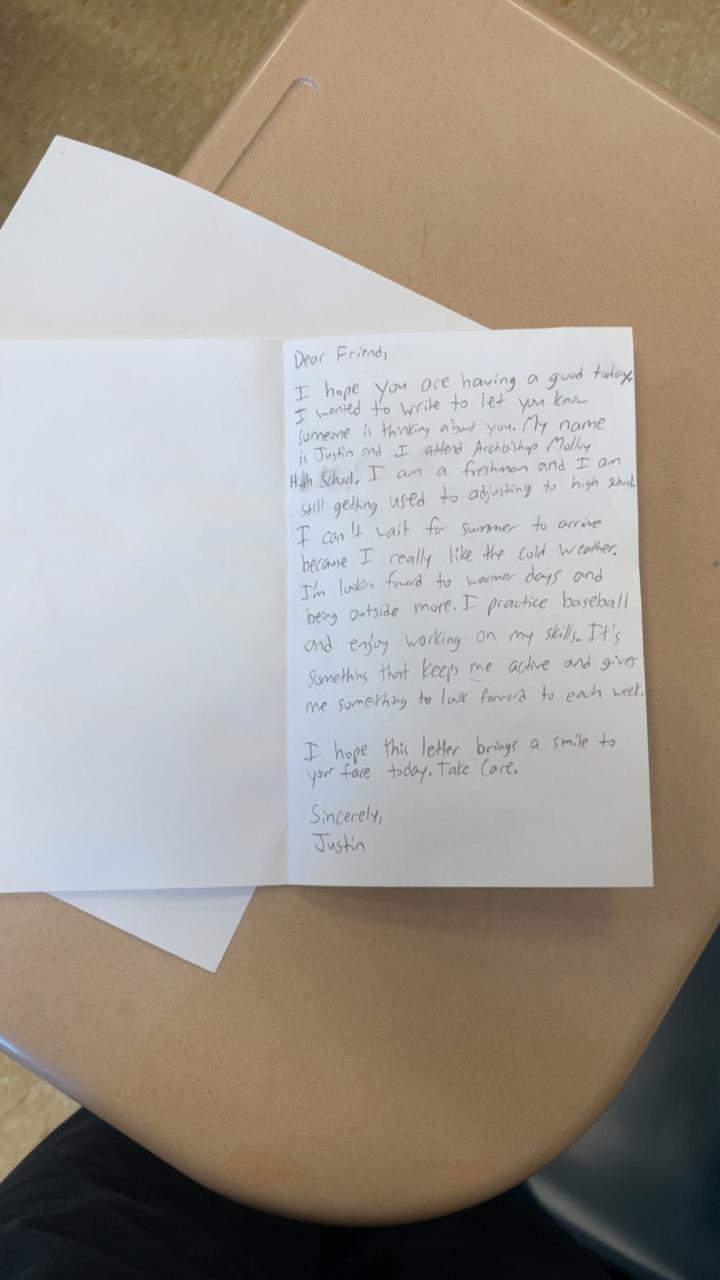 Dear Friend,
I hope you are having a good today.
I wanted to write to let you know
someone is thinking about you. My name
is Justin and I attend Archbishop Molloy
High School. I am a freshman and I am
still getting used to adjusting to high school.
I can't wait for summer to arrive
because I really like the cold weather.
I'm looking foward to warmer days and
being outside more. I practice baseball
and enjoy working on my skills. It's
something that keeps me active and gives
me something to look forward to each week.
I hope this letter brings a smile to
your face today. Take Care.
Sincerely,
Justin